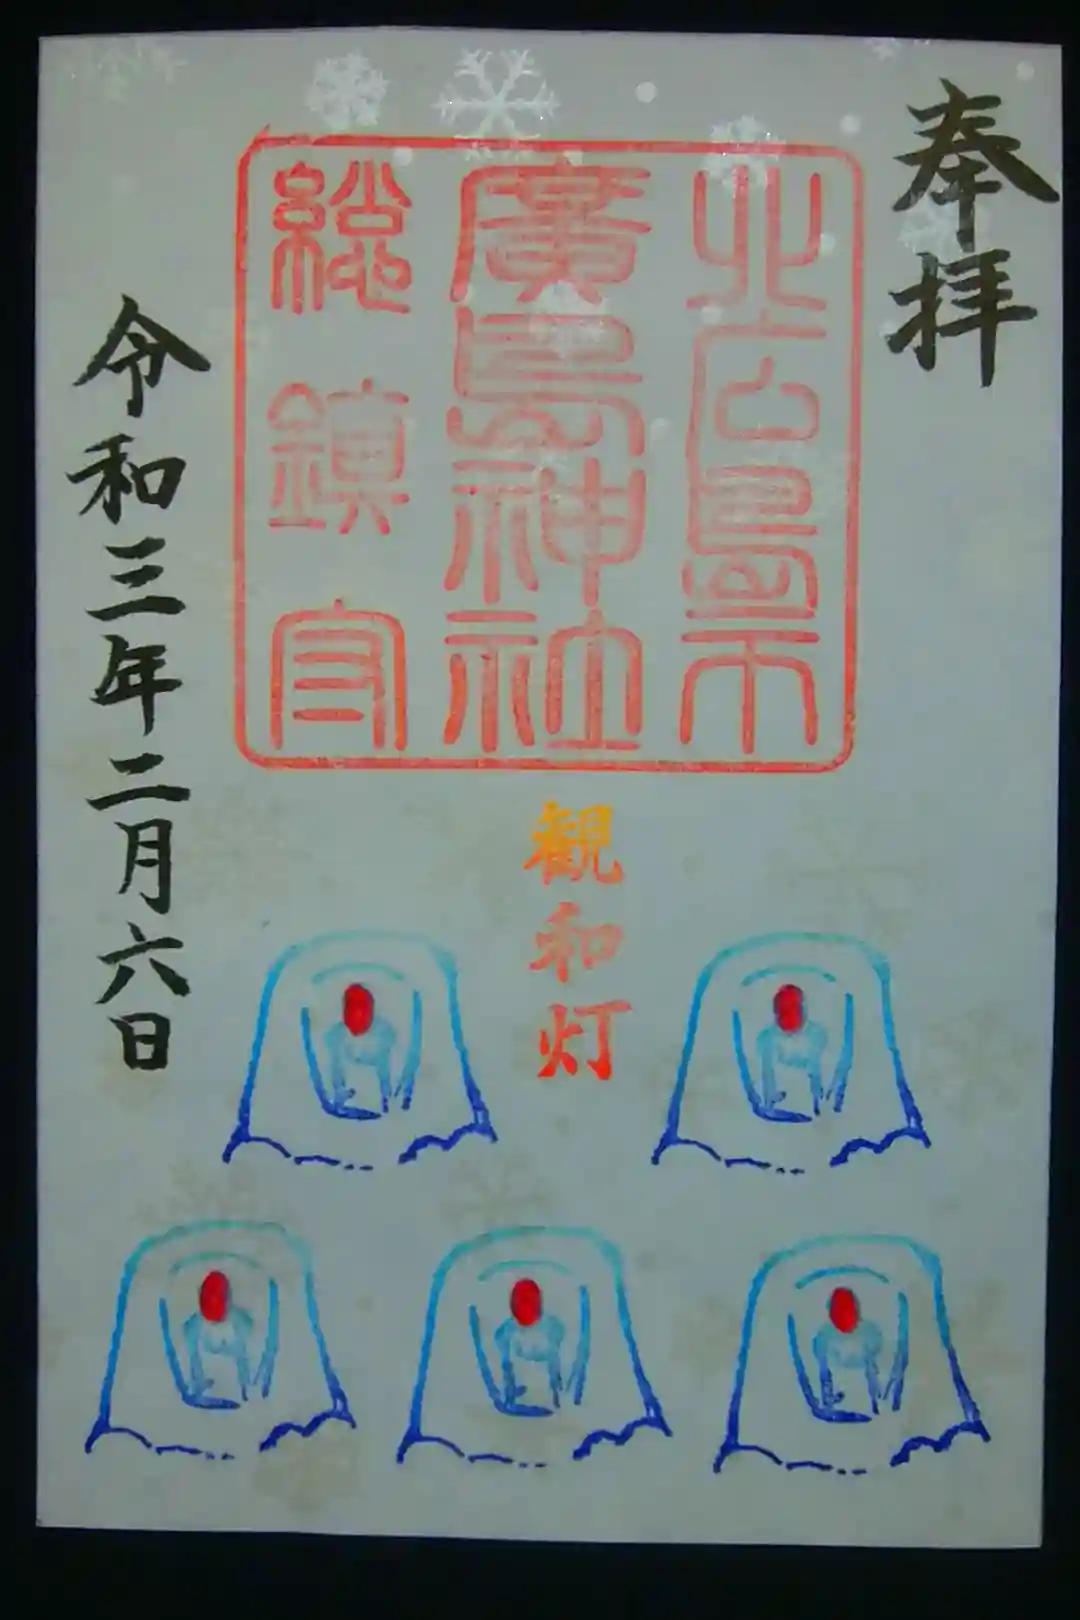 奉拝
北広島市
廣島神社
総鎮守
観和灯
令和三年二月六日